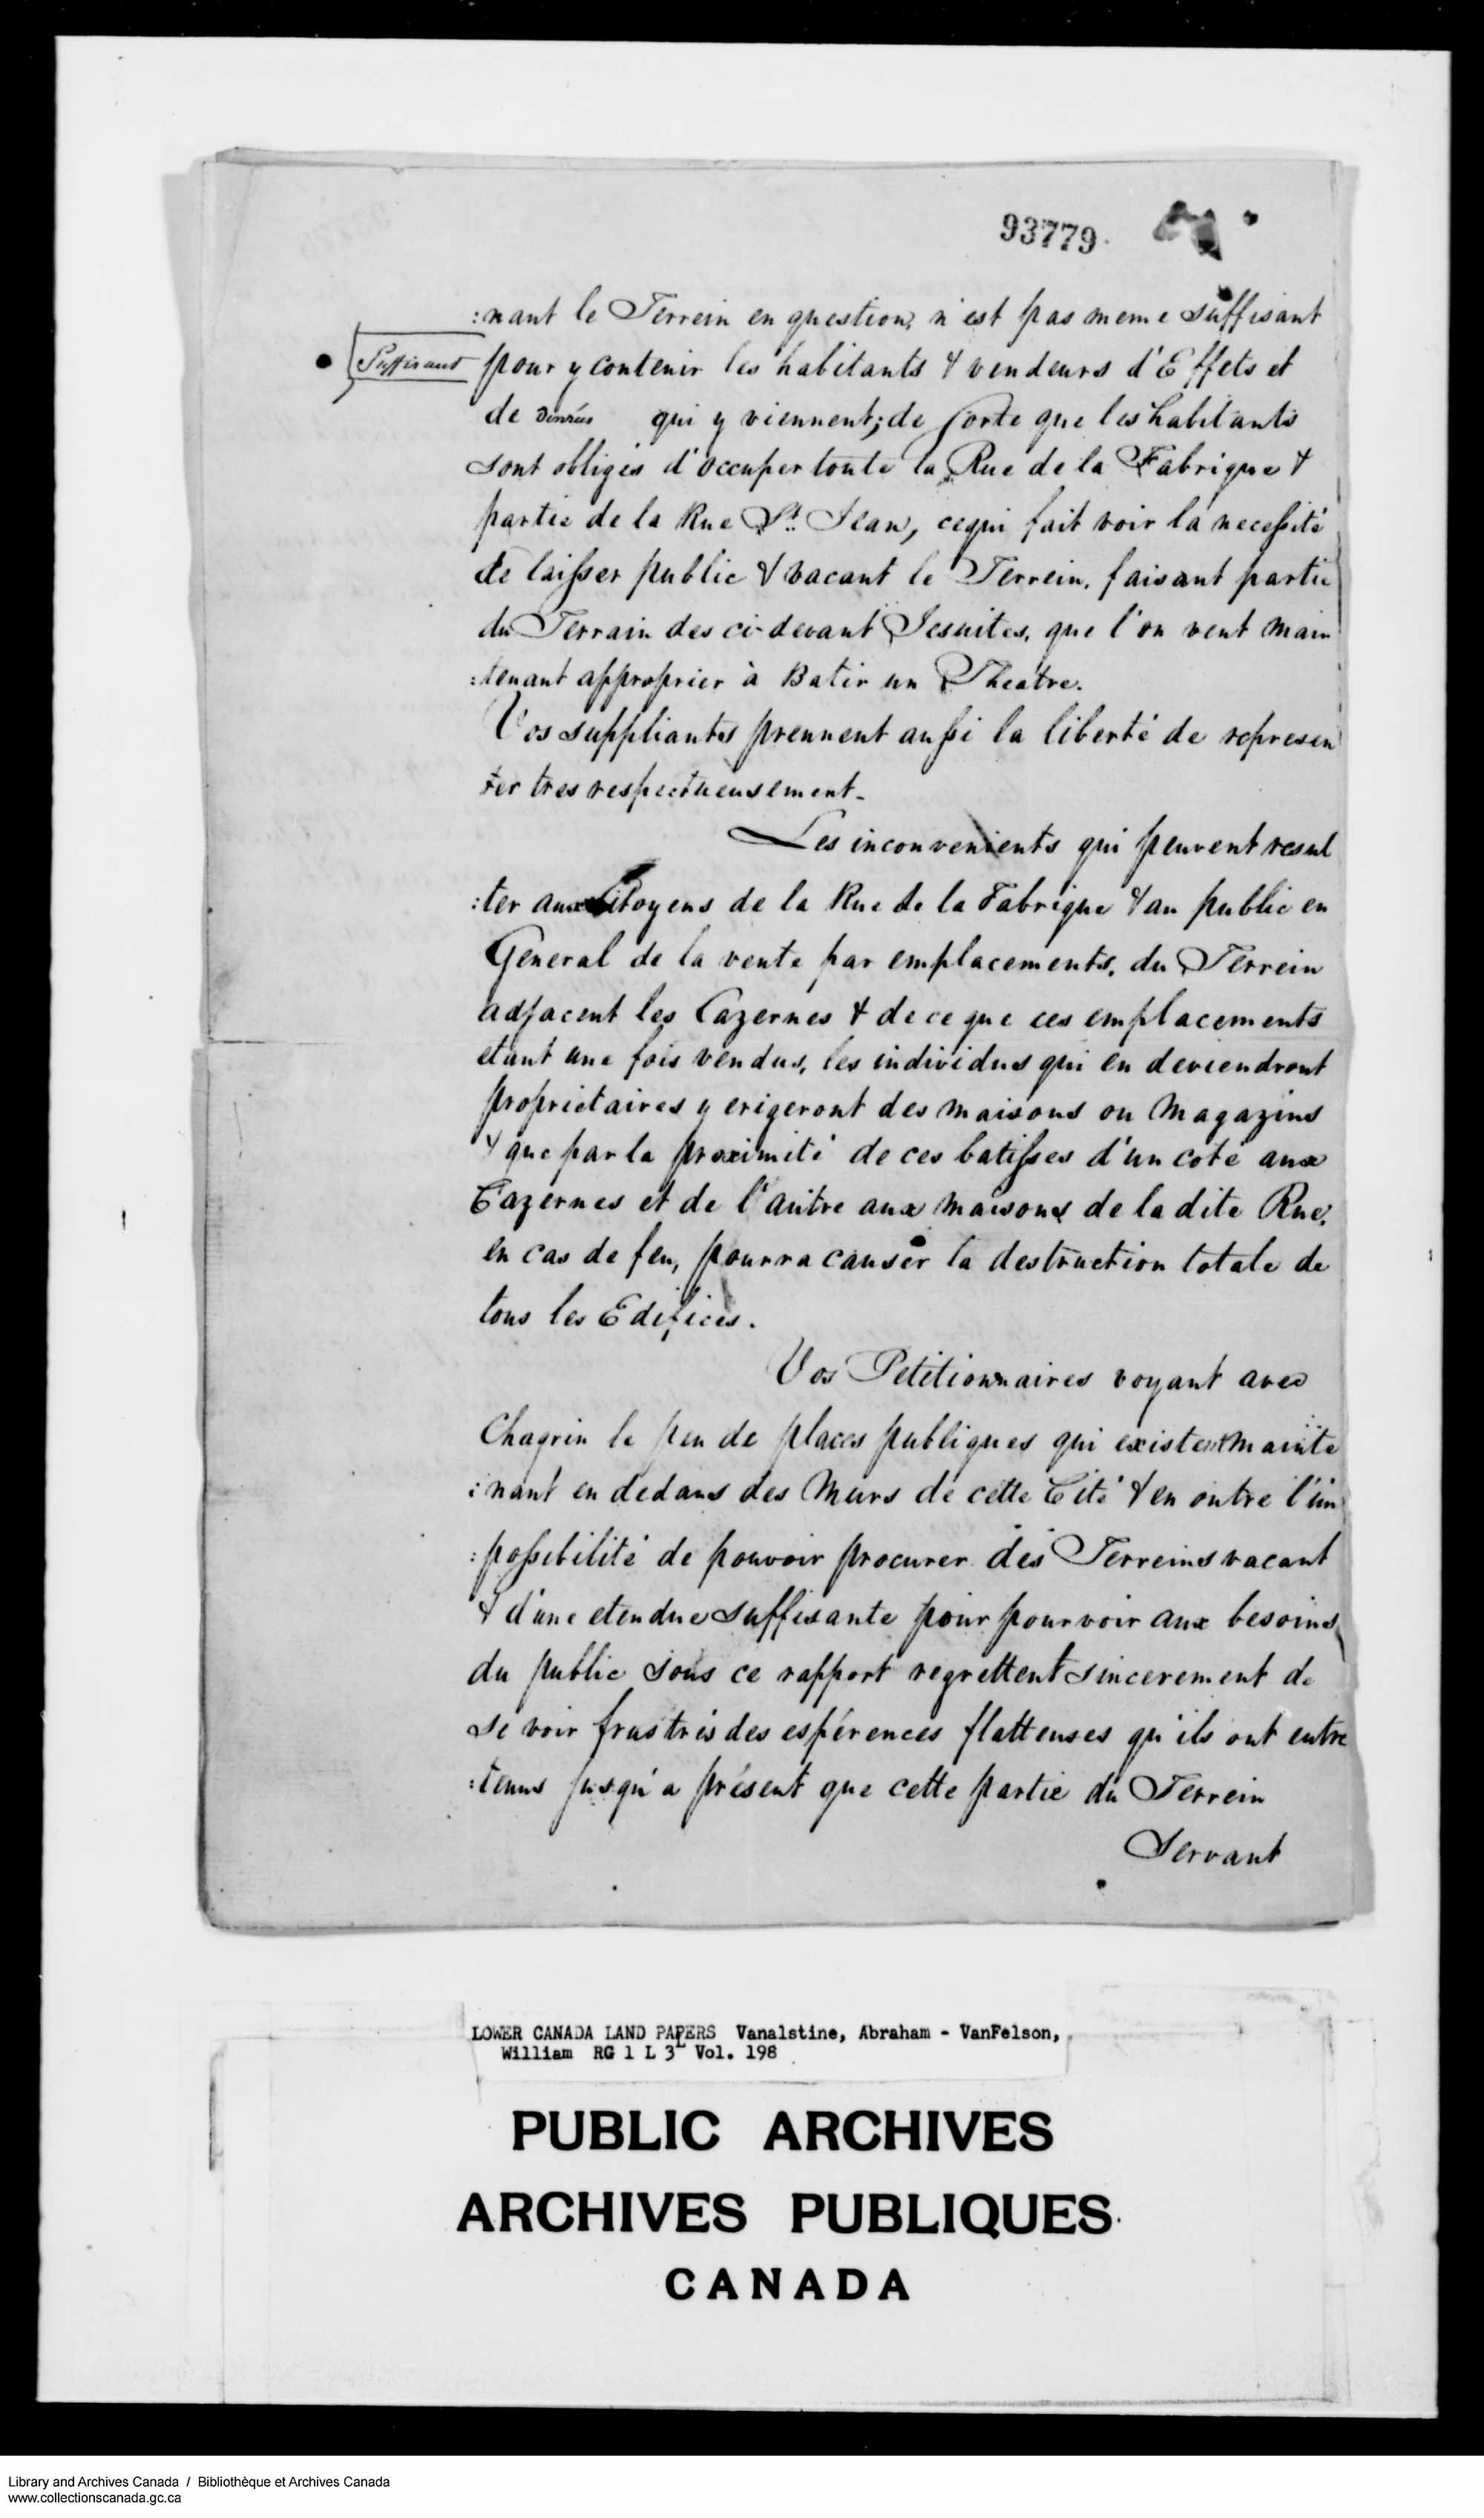 93779
:nant le Terrein en question, n'est pas meme suffisant
Suffisant
pour y contenir les habitants & vendeurs d'Effets et
de Denrées qui y viennent; de sorte que les habitants
sont obligés d'occuper toute la Rue de la Fabrique &
partie de la Rue St. Jean, cequi fait voir la necessité
de laisser public & vacant le Terrein, faisant partie
du Terrain des ci-devant Jesuites, que l'on veut main
:tenant approprier à Batir un Theatre.
Vos suppliants prennent aussi la liberté de represen
ter tres respectueusement-
Les inconvenients qui peuvent resul
:ter aux Citoyens de la Rue de la Fabrique & au public en
General de la vente par emplacements, du Terrein
adjacent les Cazernes & de ce que ces emplacements
etant une fois vendus, les individus qui en deviendront
proprietaires y erigeront des maisons ou Magazins
& que par la proximité de ces batisses d'un coté aux
Cazernes et de l'autre aux maisons de la dite Rue,
en cas de feu, pourra causer la destruction totale de
tous les Edifices.
Vos Petitionnaires voyant avec
Chagrin le peu de places publiques qui existent mainte
:nant en dedans des Murs de cette Cité & en outre l'im
:possibilité de pouvoir procurer des Terreins vacant
& d'une etendue suffisante pour pourvoir aux besoins
du public sous ce rapport regrettent sincerement de
se voir frustrés des espérences flatteuses qu'ils ont entre
:tenus jusqu'a présent que cette partie du Terrein
Servant
LOWER CANADA LAND PAPERS Vanalstine, Abraham - VanFelson,
William RG 1 L 3L Vol. 198
PUBLIC ARCHIVES
ARCHIVES PUBLIQUES
CANADA
Library and Archives Canada / Bibliothèque et Archives Canada
www.collectionscanada.gc.ca